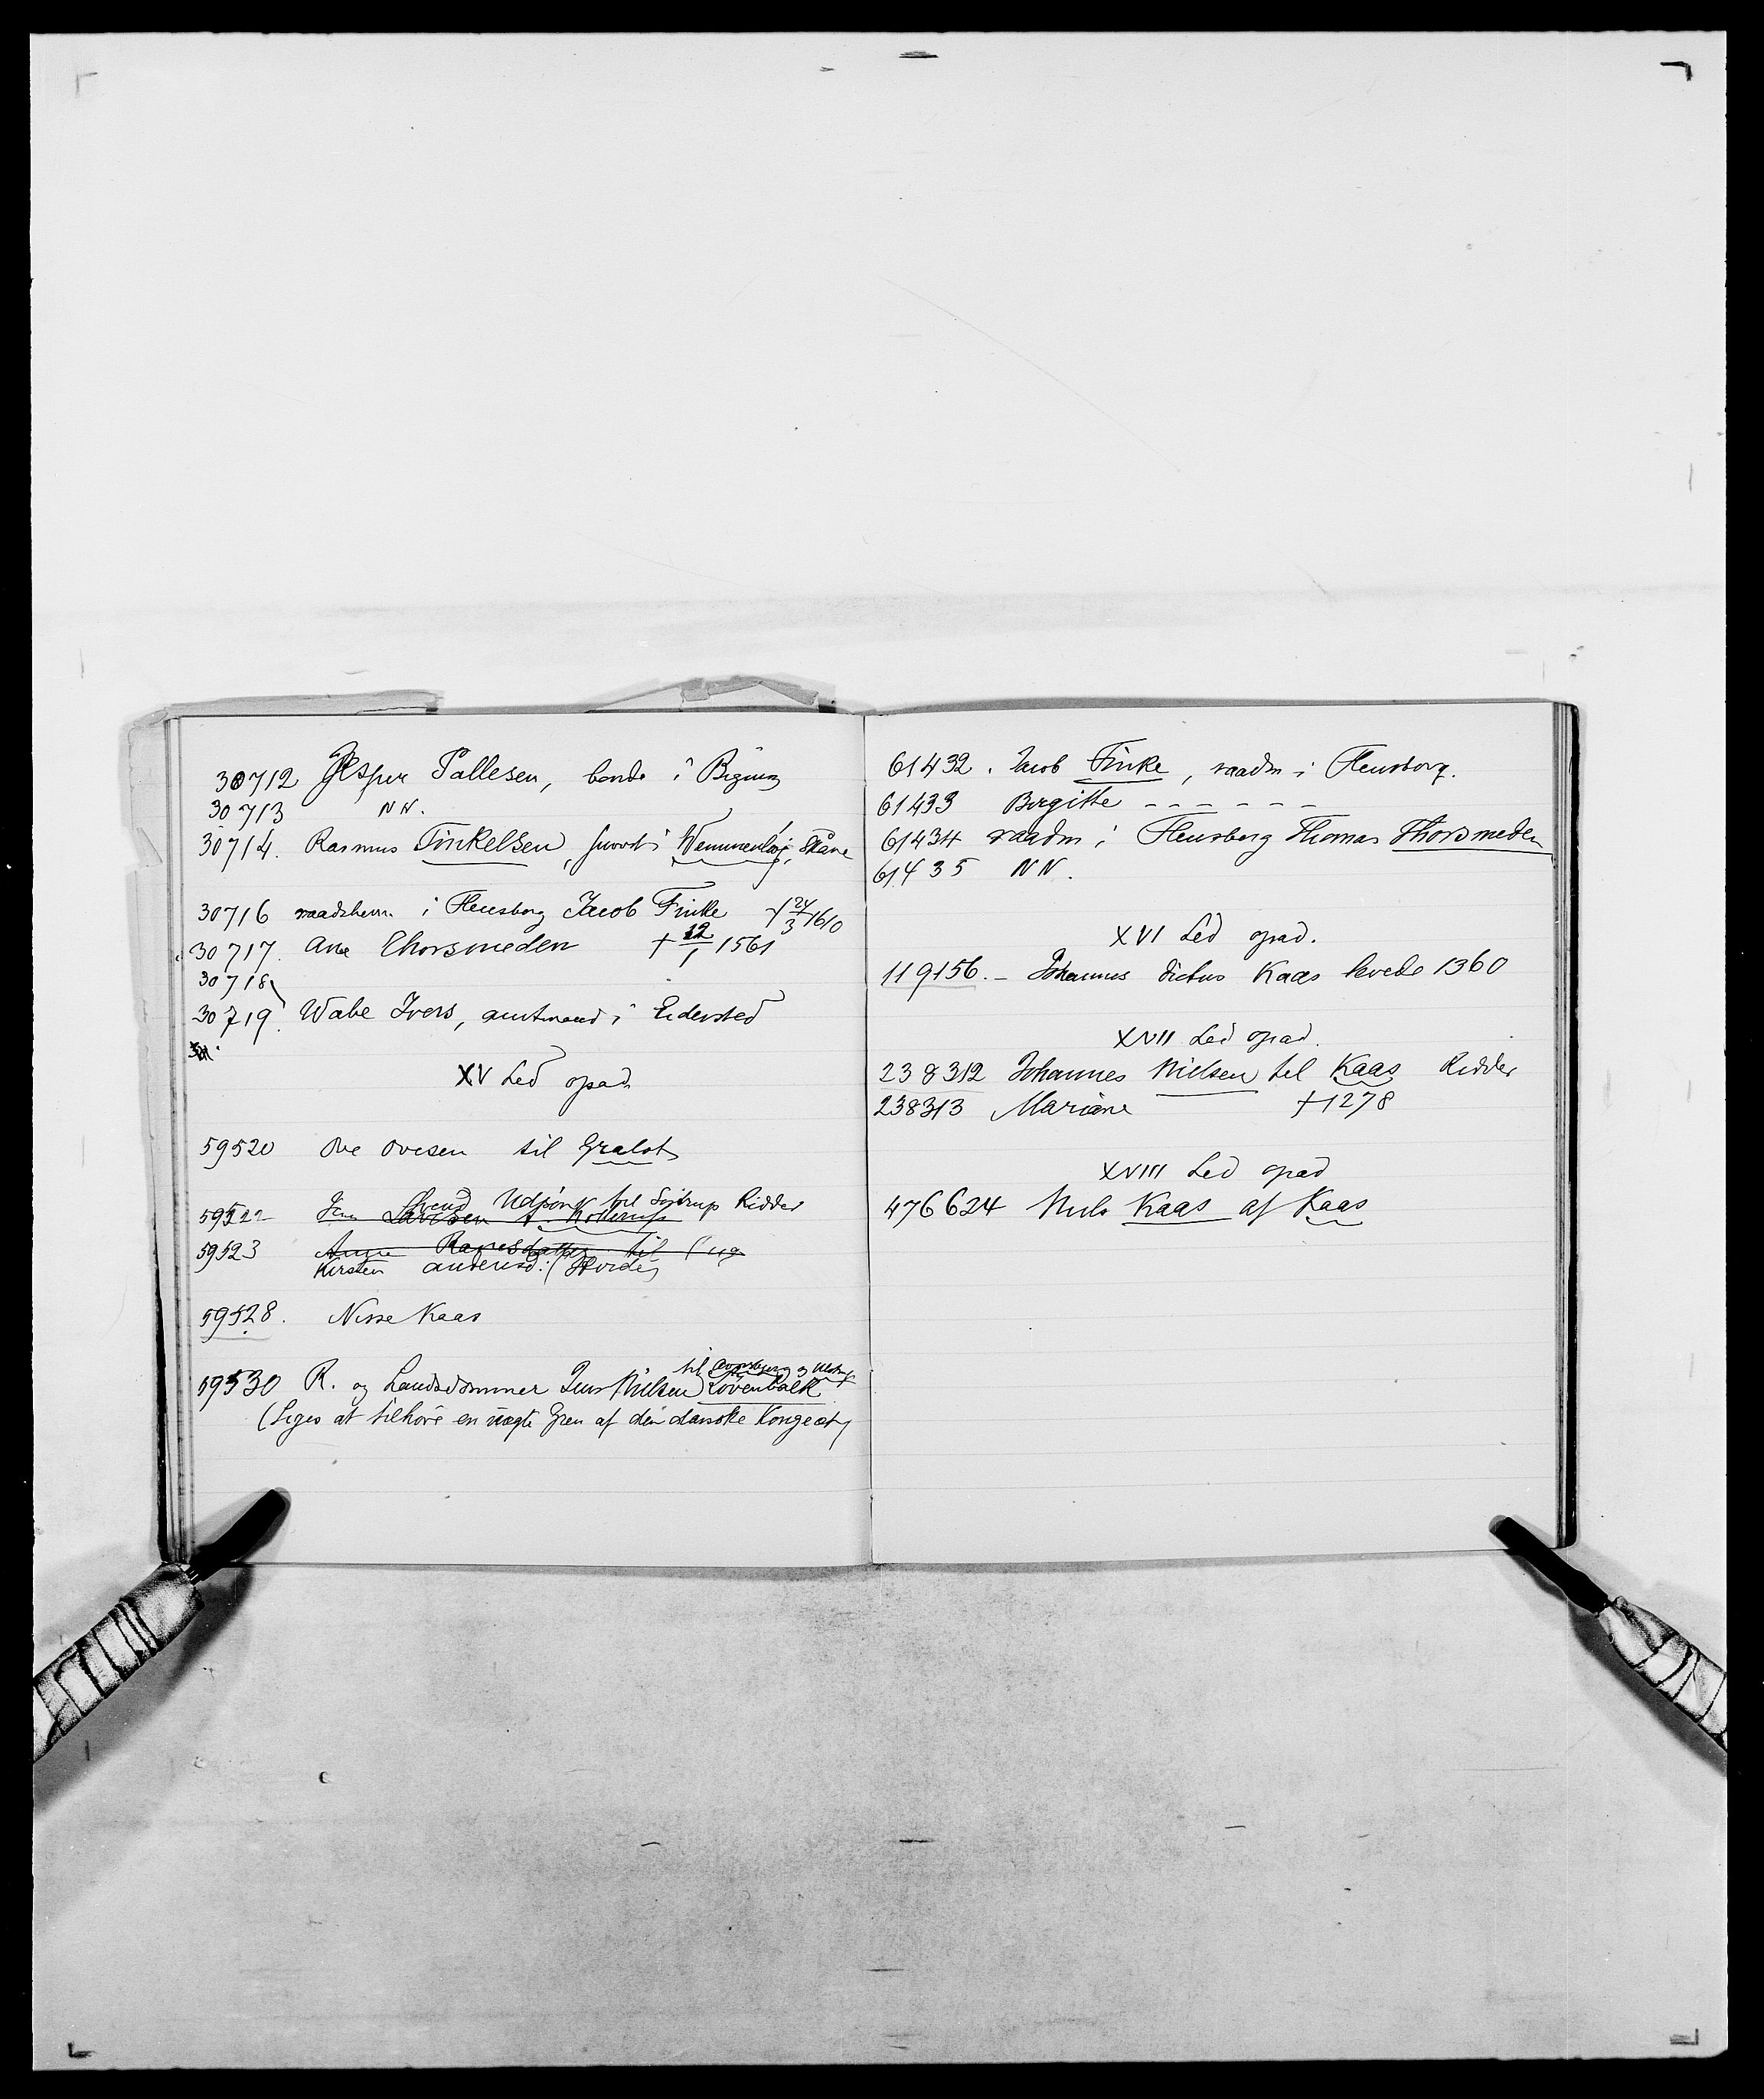 30712 Jesper Pallesen, bonde i
30713 NN.
30714. Rasmus Finkelsen, i Wemmenhøj, Skåne
30716 raadsherre i Flensborg Jacob Finke † 24/3 1610
30717. Ane Thorsmeden † 12/1 1561
30718
30719. Wabe Ivers, amtmand i Eidersted
XV Led opad.
59520 Ove Ovesen til
59522 Svend Udsøn til Søstrup Ridder
Jens Lavesen t. Kollerup
59523 Anne Ranesdatter til
Kirsten Andersd. (Hvide)
59528. Nisse Kaas
til og
59530 R. og Landsdommer Jens Nielsen Lövenbalk
(Siges at tilhöre en uægte Gren af den danske Kongeæt)
61432. Jacob Finke, raadm i Flensborg.
61433 Birgitte - - - - - -
61434 raadm i Flensborg Thomas Thorsmeden
61435 NN.
XVI Led opad.
119156. - Johannes dictus Kaas levede 1360
XVII Led opad.
238312 Johannes Nielsen til Kaas Ridder
238313 Mariane † 1278
XVIII Led opad
476624 Niels Kaas af Kaas